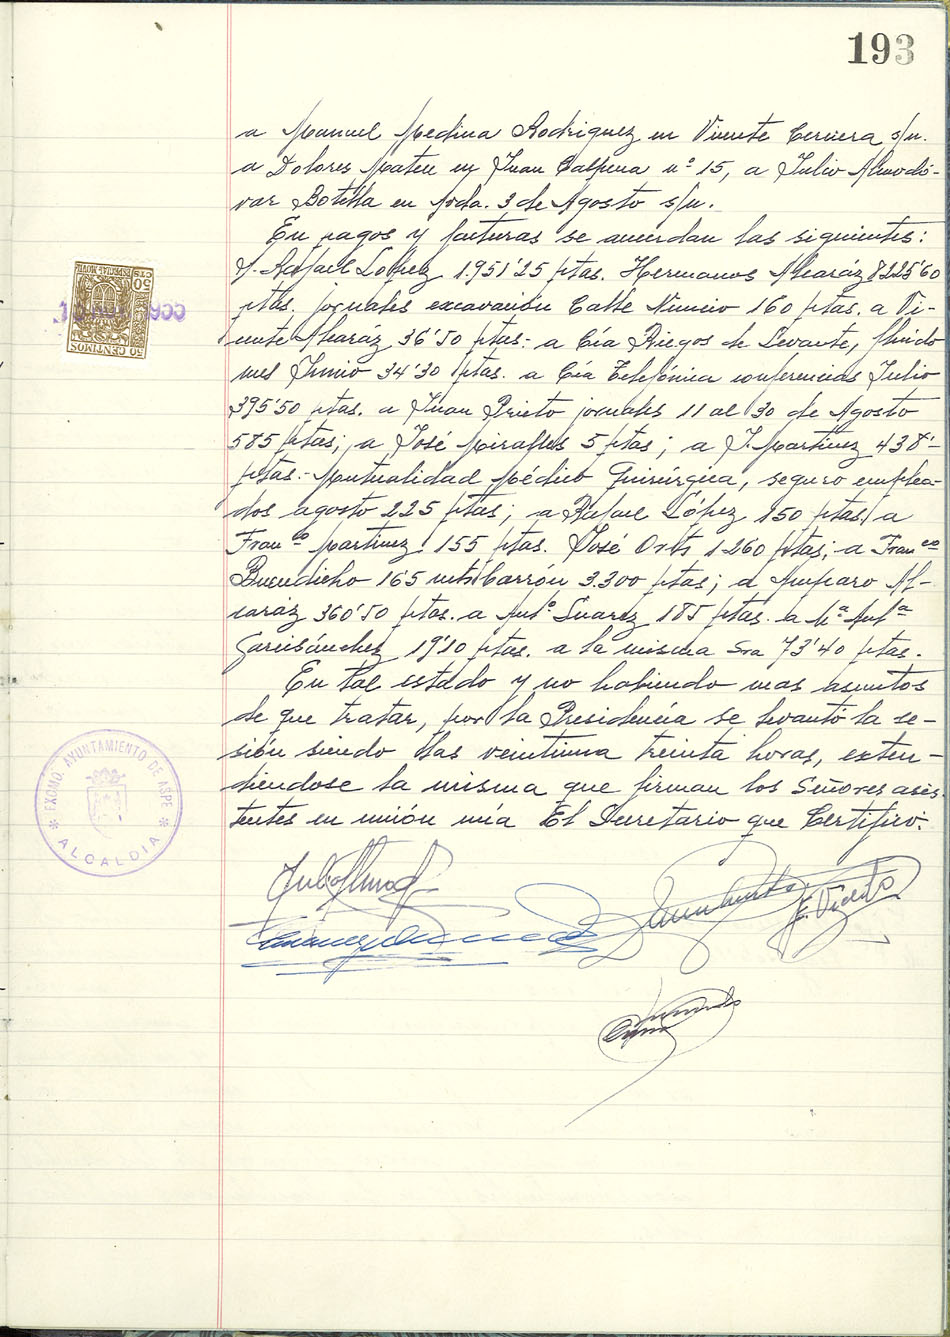 193
a Manuel Medina Rodriguez en Vicente Cervera s/n.
a Dolores Mateu en Juan Calpena nº 15, a Julio Almodó-
var Botella en Avda. 3 de Agosto s/n.
En pagos y facturas se acuerdan las siguientes:
Rafael López 1.951'25 ptas. Hermanos Alcaráz 8225'60
ptas. jornales excavación Calle Nuncio 160 ptas. a Vi-
cente Alcaráz 36'50 ptas.- a Cía Riegos de Levante, fluido
mes Junio 34'30 ptas. a Cía Telefónica conferencias Julio
395'50 ptas. a Juan Prieto jornales 11 al 30 de Agosto
585 ptas; a José Miralles 5 ptas; a J. Martinez 438'-
ptas.- Mutualidad Médico Quirúrgica, seguro emplea-
dos agosto 225 ptas; a Rafael López 150 ptas. a
Franco Martinez 155 ptas. José Orts 1260 ptas; a Franco
Buendicho 165 mts barrón 3.300 ptas; a Amparo Al-
caráz 360'50 ptas. a Antº Suarez 185 ptas. a Mª Antª
Garcisánchez 19'10 ptas. a la misma Sra 73'40 ptas.
En tal estado y no habiendo mas asuntos
de que tratar, por la Presidencia se levantó la se-
sión siendo las veintiuna treinta horas, exten-
diendose la misma que firman los Señores asis-
tentes en unión mía El Secretario que Certifico:
ESPECIAL MOVIL
50 CTS
50 CENTIMOS
EXCMO. AYUNTAMIENTO DE ASPE
ALCALDIA